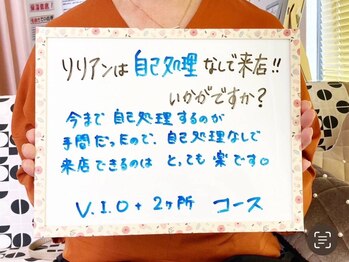 リリアンは自己処理なしで来店!!
いかがですか?
今まで自己処理するのが
手間だったので、自己処理なしで
来店できるのは とっても 楽です。
V.I.O+2ヶ所 コース